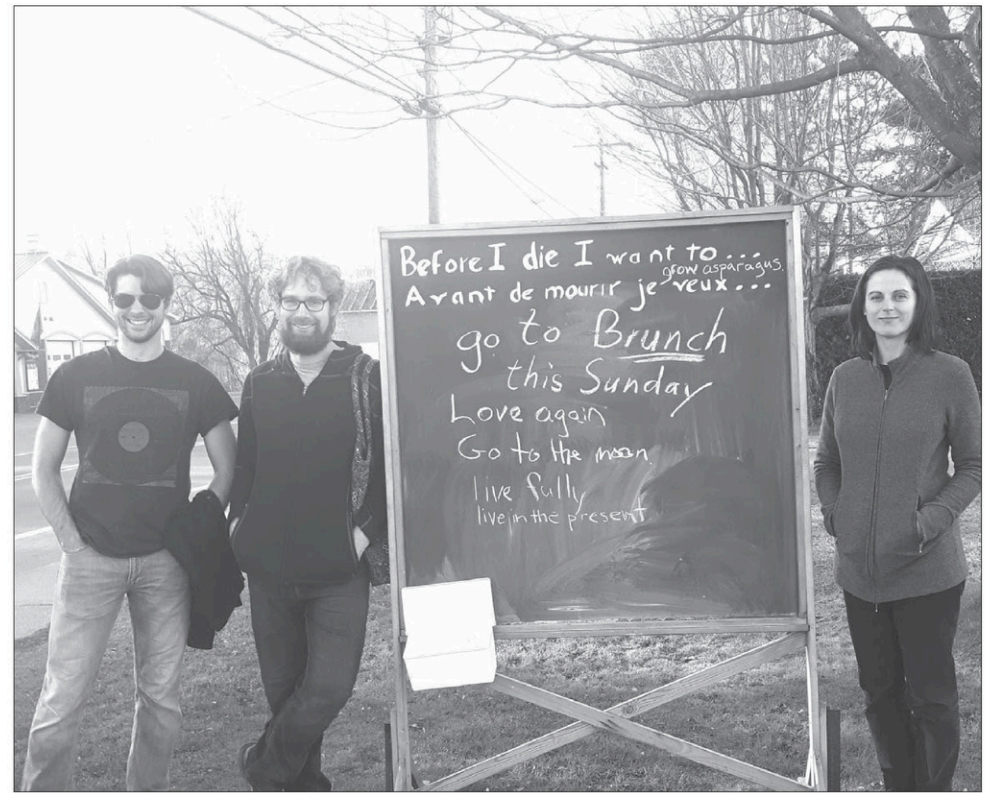 Before I die I want to...
grow asparagus.
Avant de mourir je veux...
go to Brunch
this Sunday
Love again
Go to the moon
live fully
live in the present